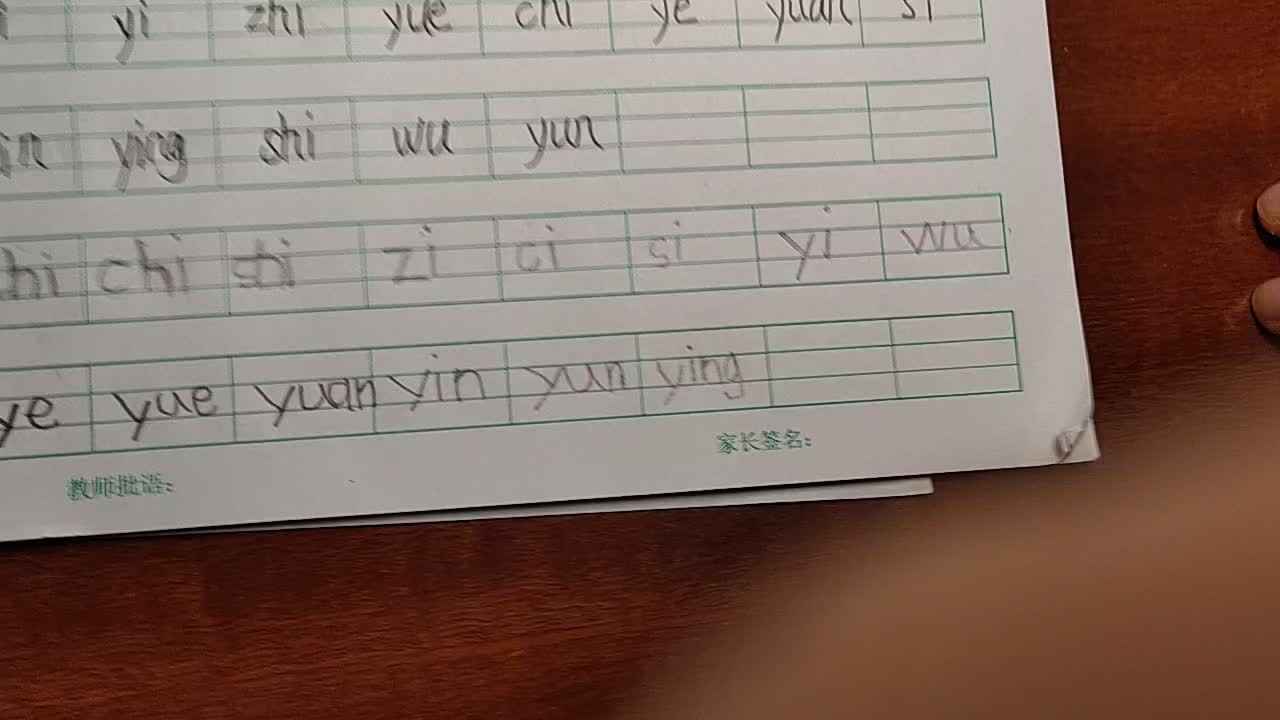 yi zhi yue chi ye yuan si
ying shi wu yun
chi shi zi ci si yi wu
ye yue yuan yin yun ying
家长签名:
教师批语: